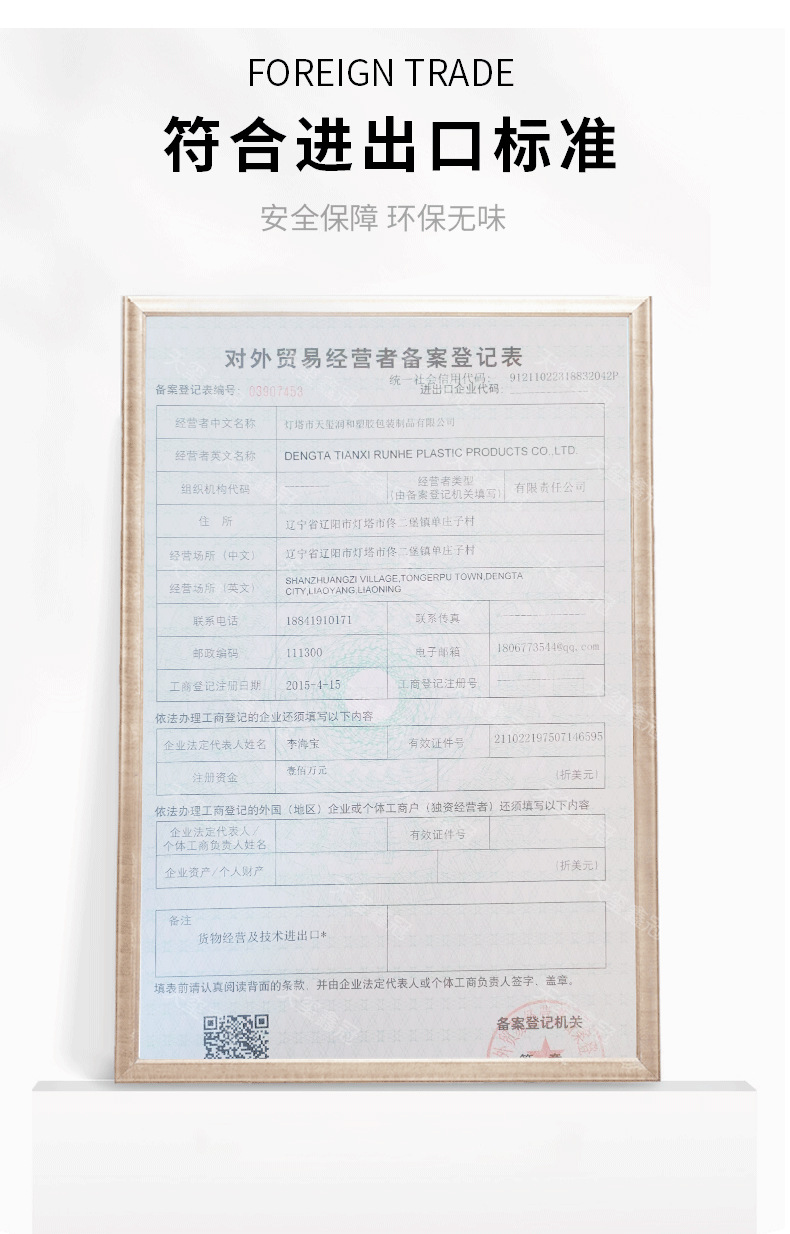 FOREIGN TRADE
符合进出口标准
安全保障 环保无味
对外贸易经营者备案登记表
统一社会信用代码: 91211022318832042P
备案登记表编号: 03907453 进出口企业代码:
经营者中文名称 灯塔市天玺润和塑胶包装制品有限公司
经营者英文名称 DENGTA TIANXI RUNHE PLASTIC PRODUCTS CO.,LTD.
组织机构代码 经营者类型 有限责任公司
(由备案登记机关填写)
住 所 辽宁省辽阳市灯塔市佟二堡镇单庄子村
经营场所（中文） 辽宁省辽阳市灯塔市佟二堡镇单庄子村
经营场所（英文） SHANZHUANGZI VILLAGE,TONGERPU TOWN,DENGTA
CITY,LIAOYANG.LIAONING
联系电话 18841910171 联系传真
邮政编码 111300 电子邮箱 1806773544@qq.com
工商登记注册日期 2015-4-15 工商登记注册号
依法办理工商登记的企业还须填写以下内容
企业法定代表人姓名 李海宝 有效证件号 211022197507146595
注册资金 壹佰万元 (折美元)
依法办理工商登记的外国（地区）企业或个体工商户（独资经营者）还须填写以下内容
企业法定代表人/ 有效证件号
个体工商负责人姓名
企业资产/个人财产 (折美元)
备注
货物经营及技术进出口*
填表前请认真阅读背面的条款，并由企业法定代表人或个体工商负责人签字、盖章。
备案登记机关